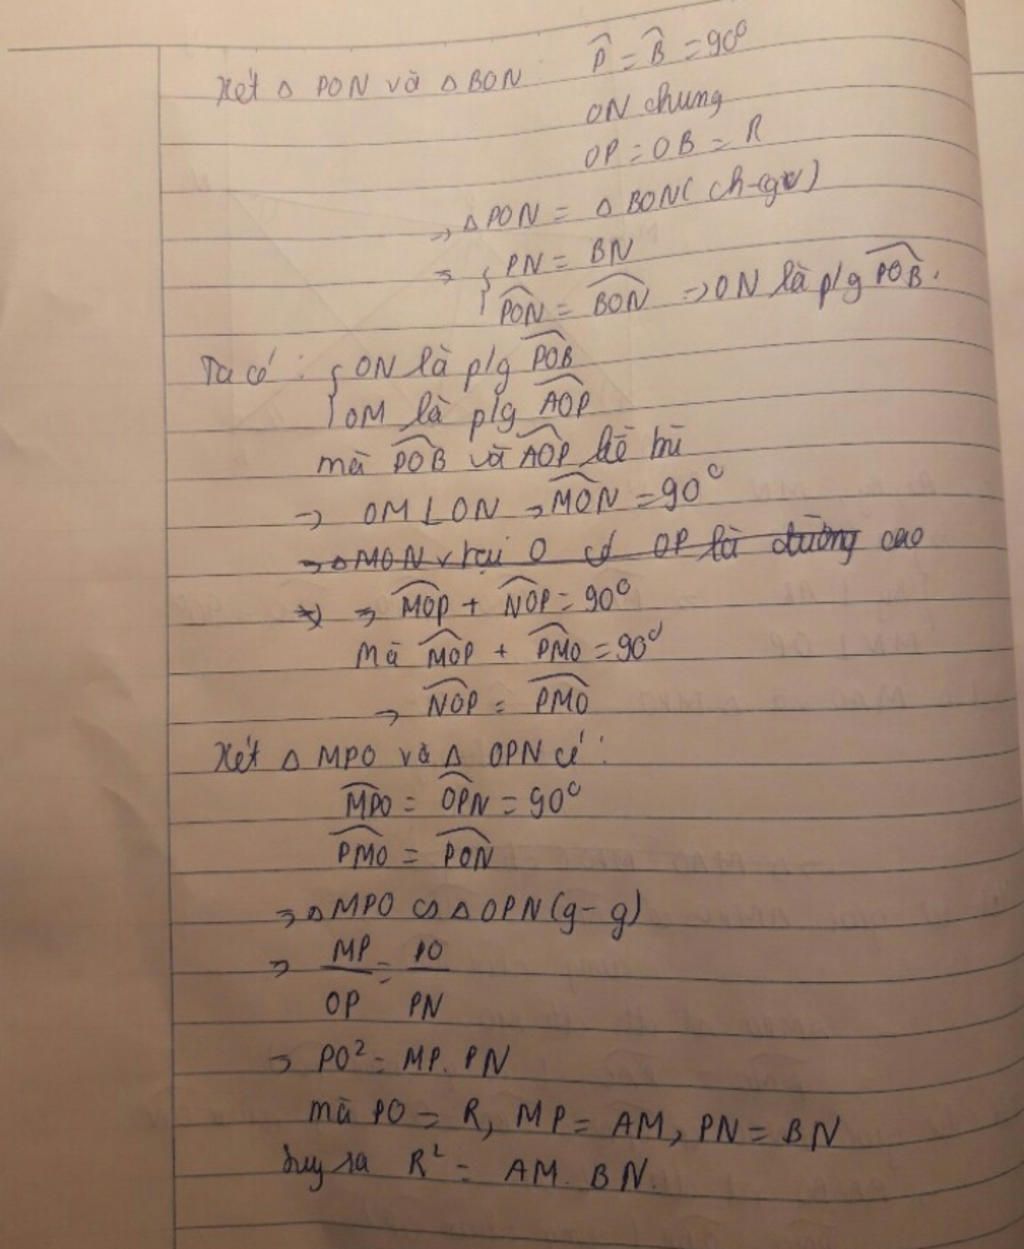 Xét △ PON và △ BON: P̂ = B̂ = 90°
ON chung
OP = OB = R
→ △ PON = △ BON (ch-cgv)
→ { PN = BN
{ PON = BON → ON là p/g POB.
Ta có: { ON là p/g POB
{ OM là p/g AOP
mà POB và AOP kề bù
→ OM ⊥ ON → MON = 90°
→ △ MON v tại O có OP là đường cao
→ MOP + NOP = 90°
Mà MOP + PMO = 90°
→ NOP = PMO
Xét △ MPO và △ OPN có:
MPO = OPN = 90°
PMO = PON
→ △ MPO ∽ △ OPN (g-g)
→ MP/OP = PO/PN
→ PO² = MP. PN
mà PO = R, MP = AM, PN = BN
suy ra R² = AM. BN.